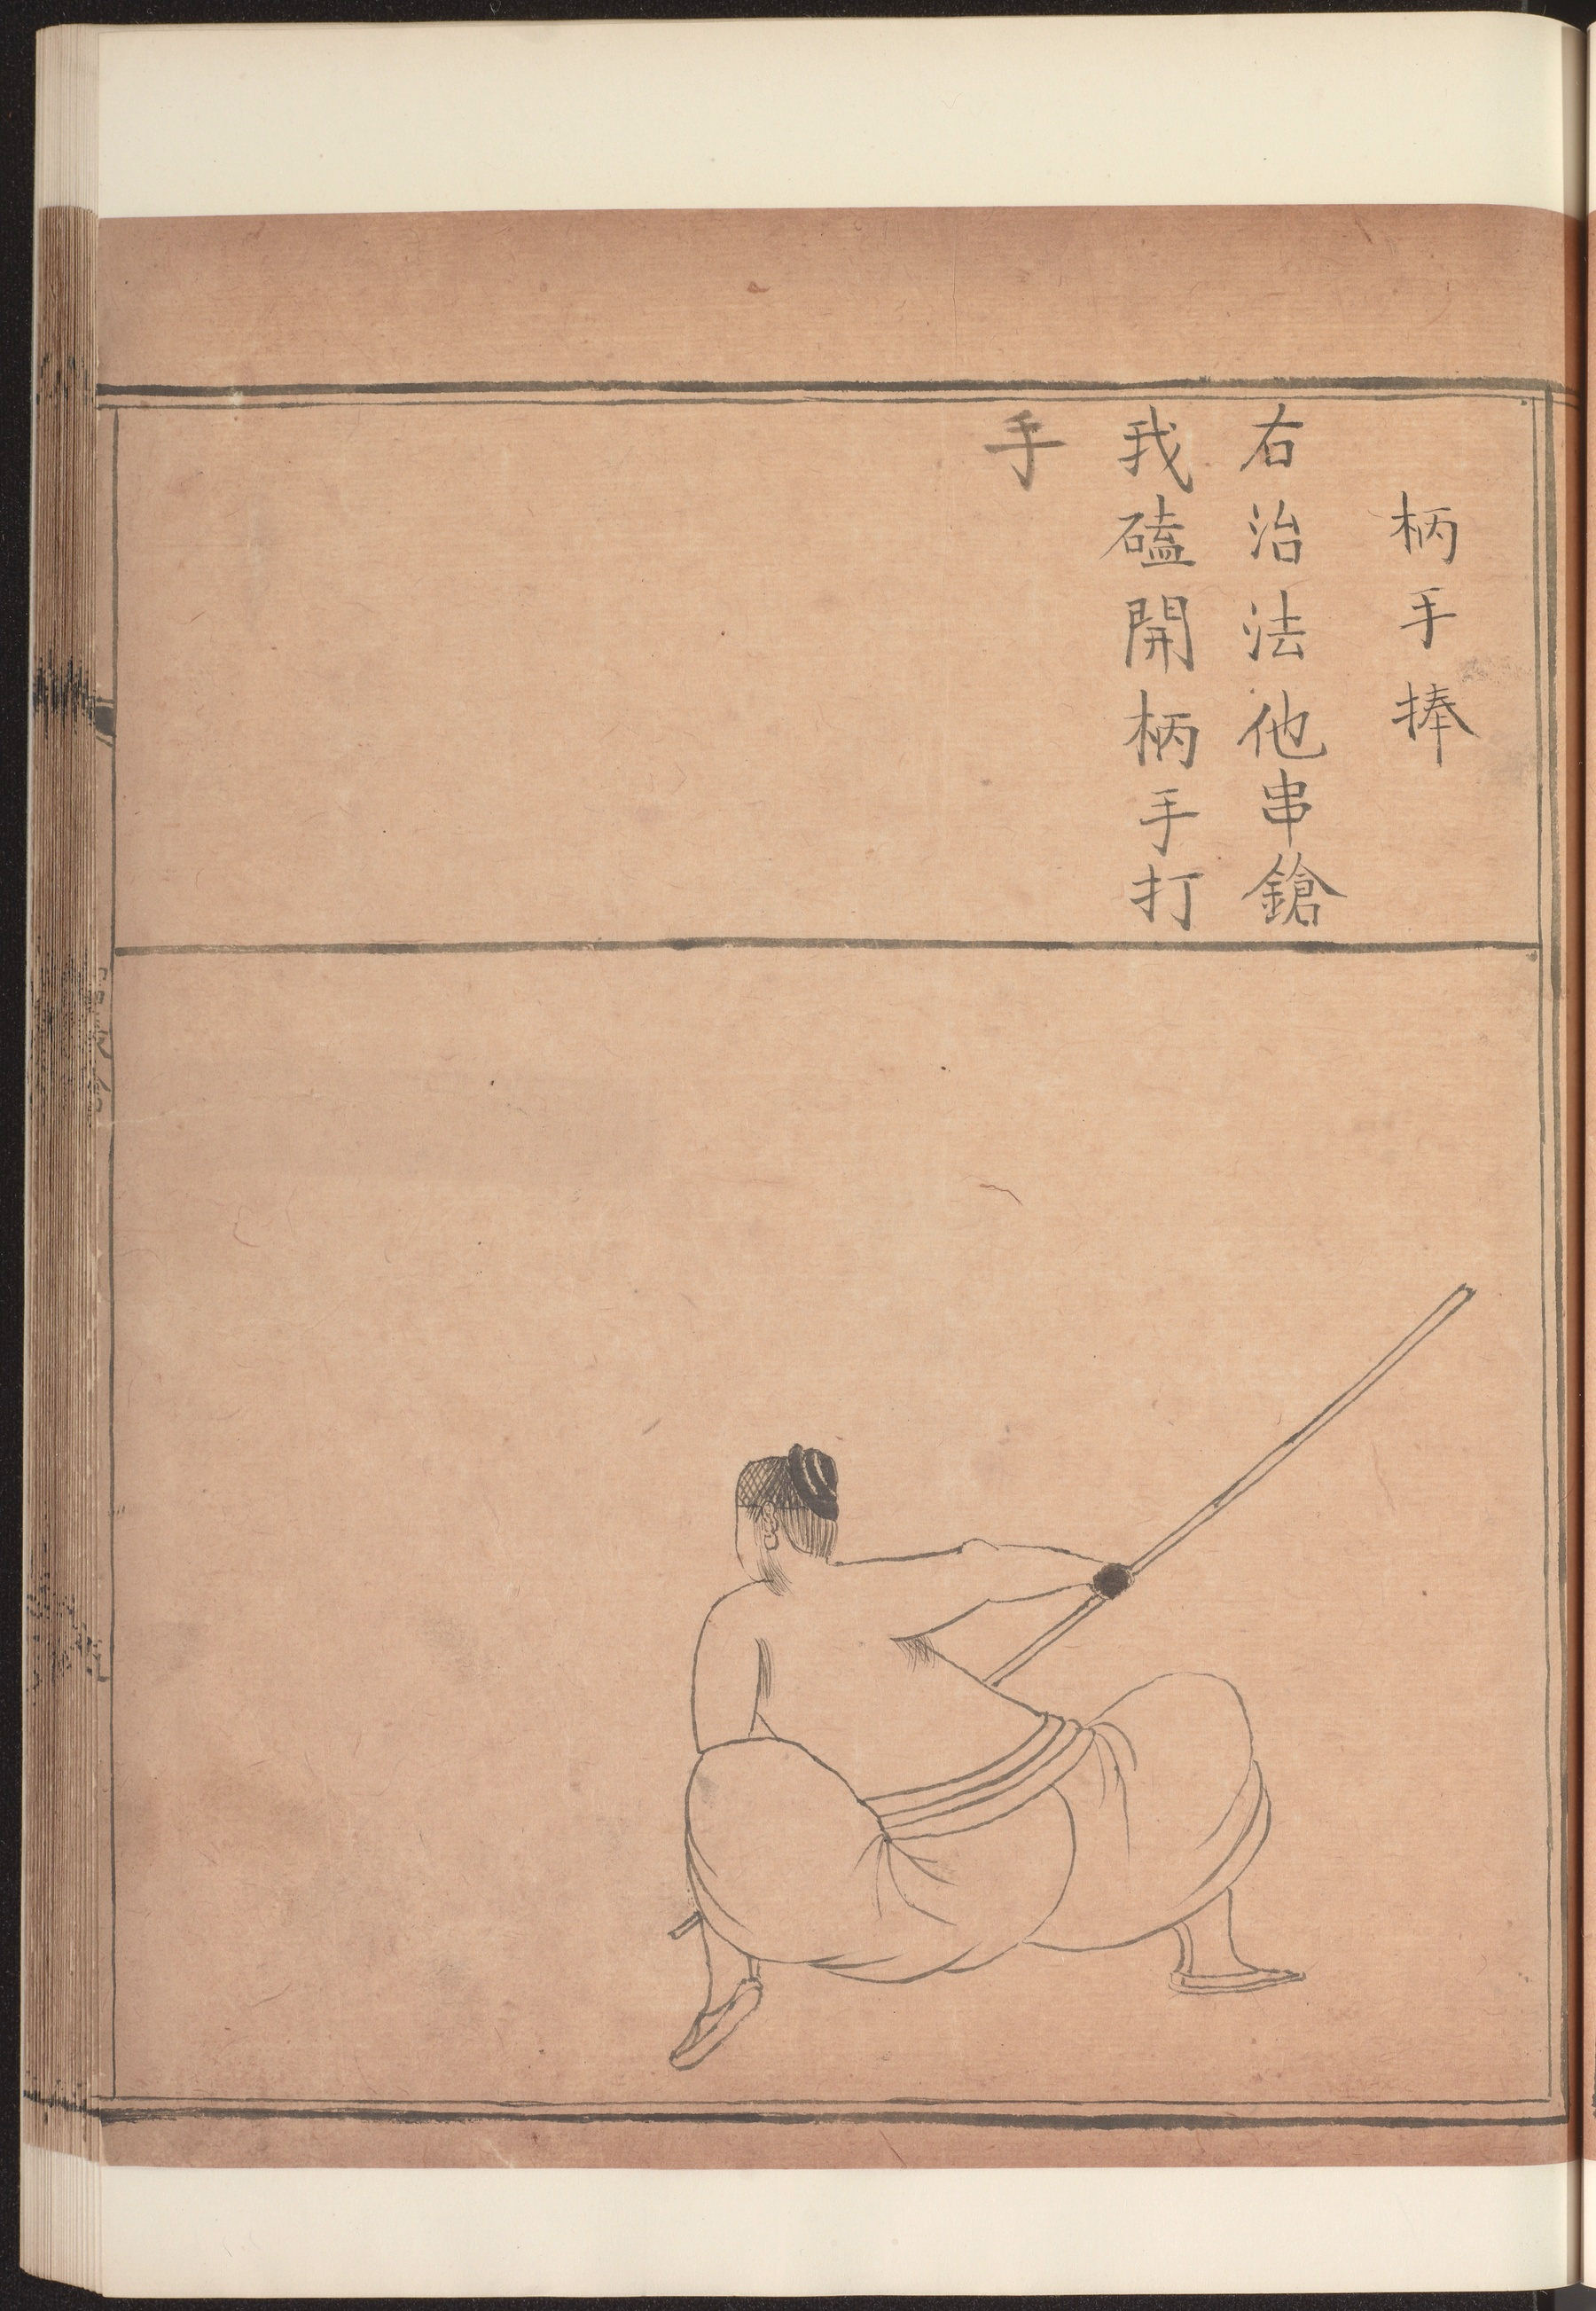 柄手捧
右治法他串鎗
我磕開柄手打
手